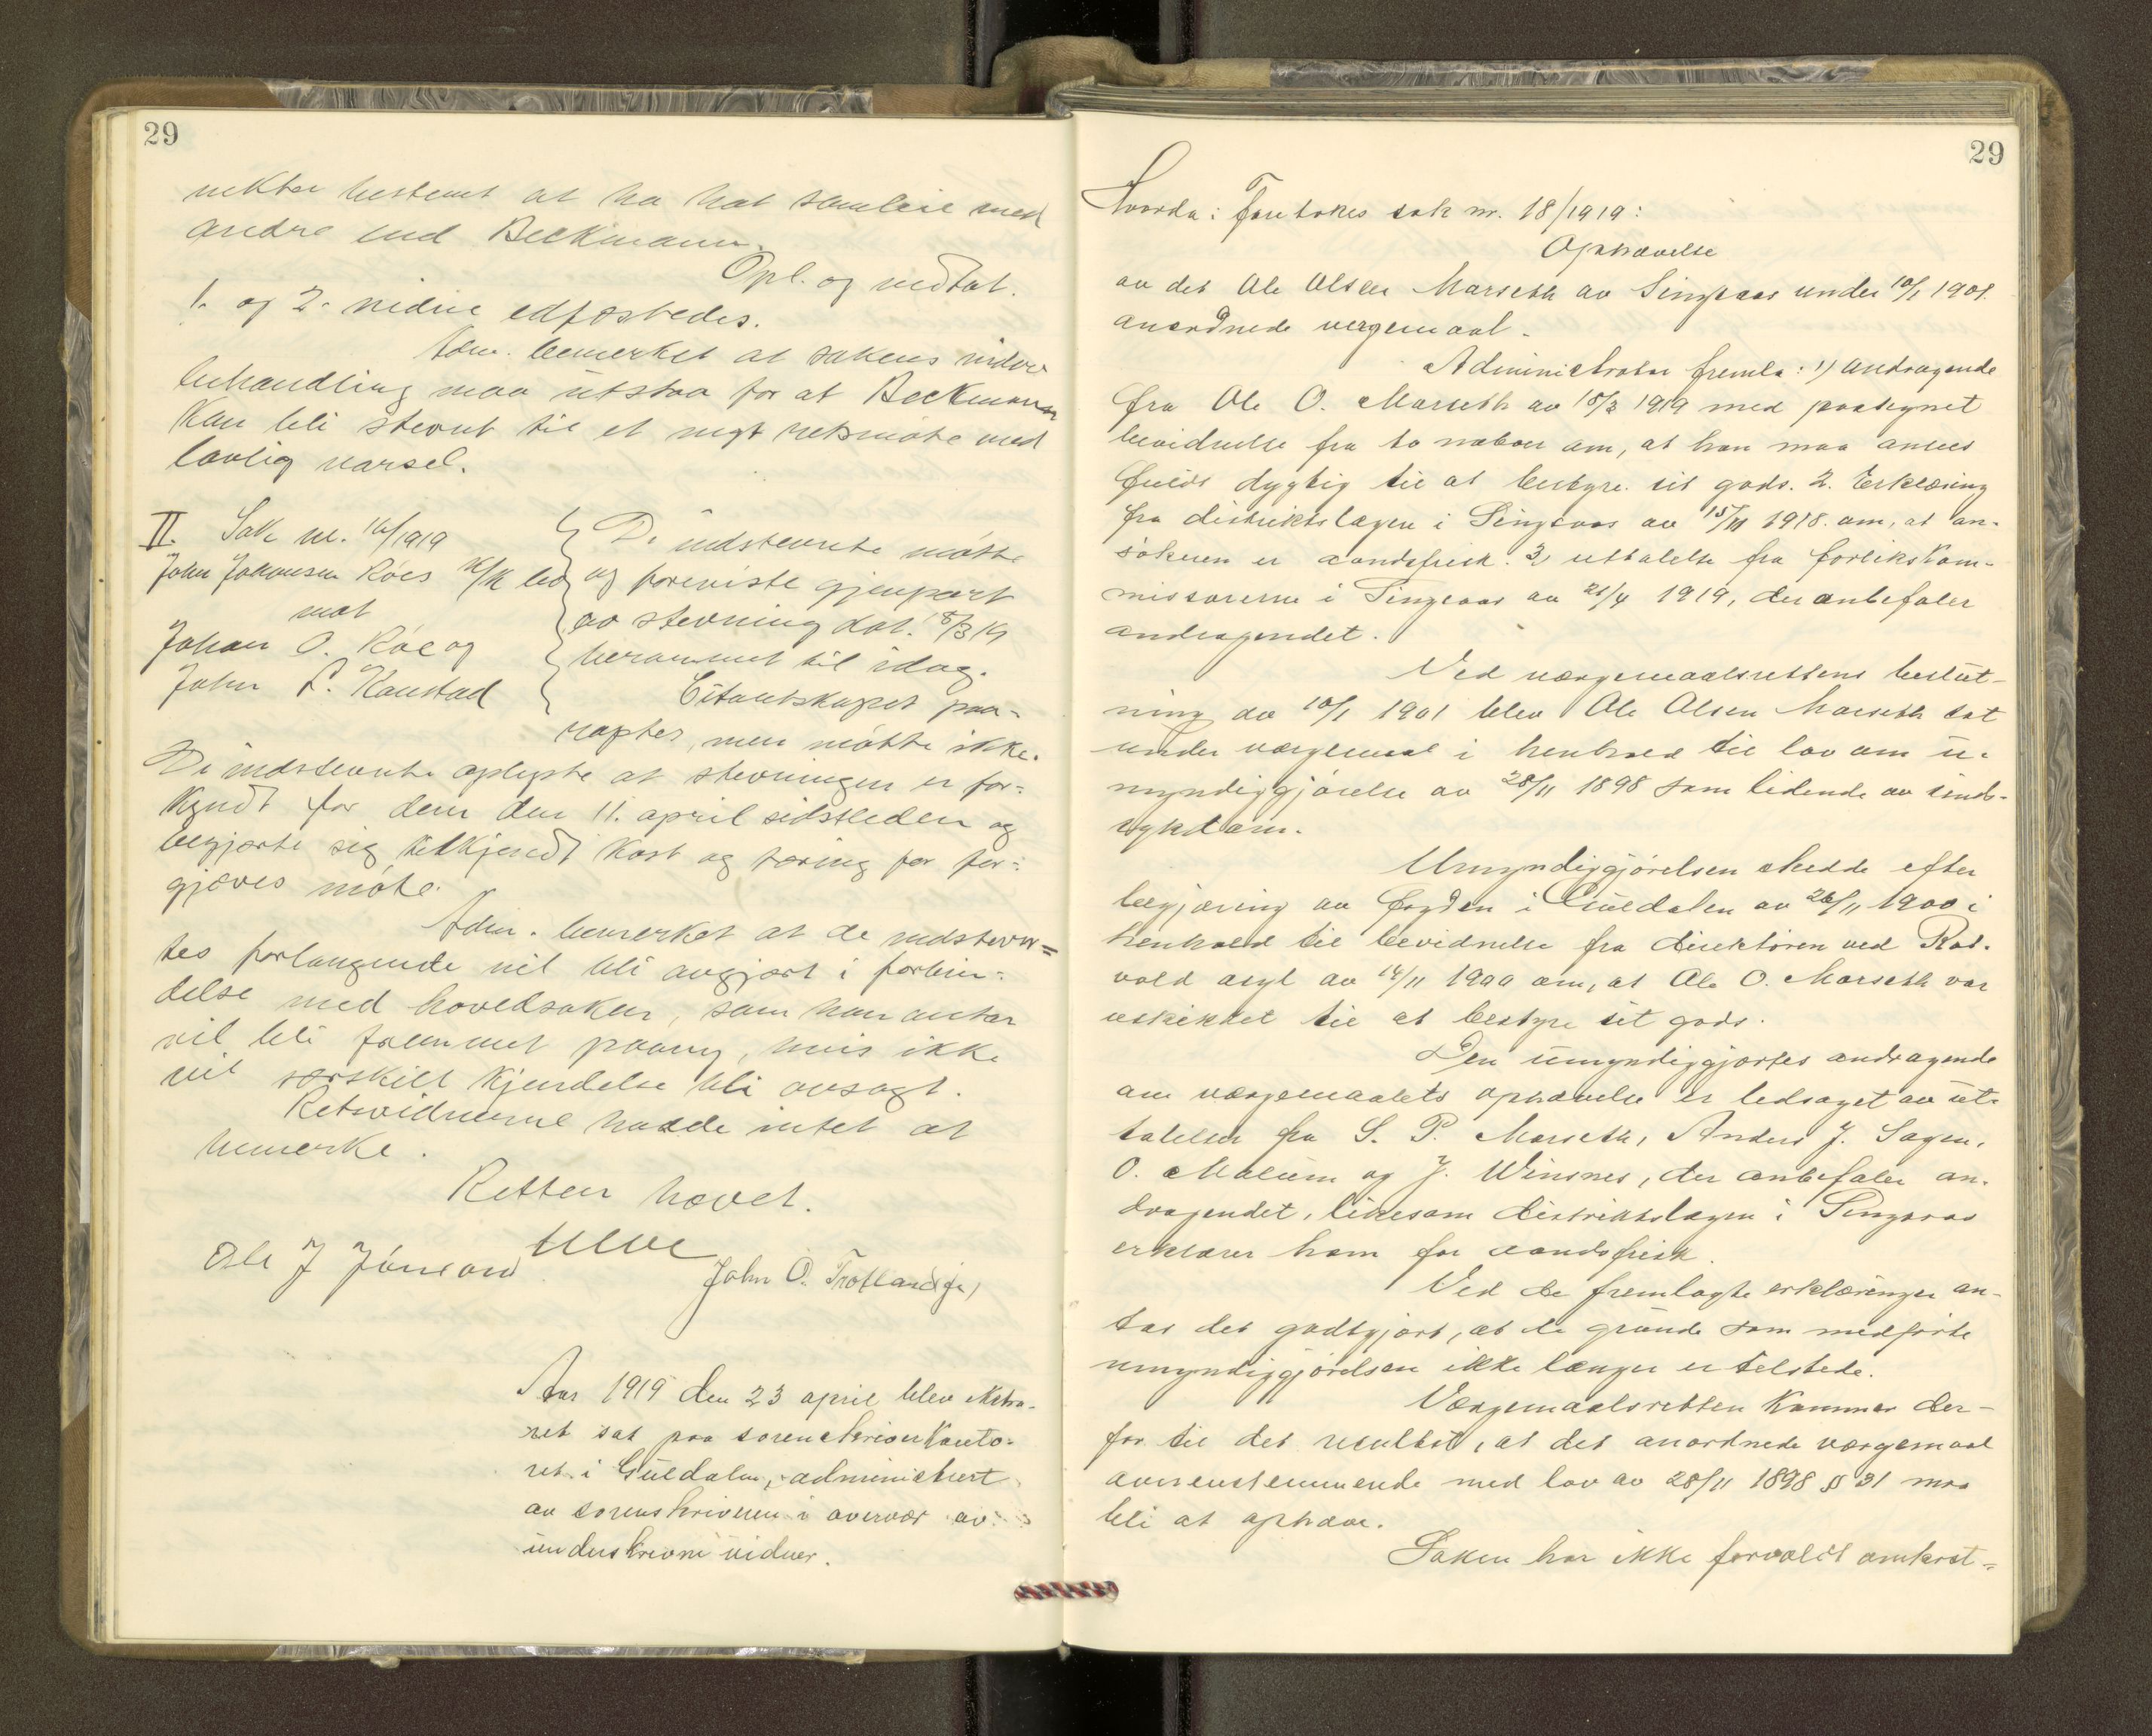 29
nekter bestemt at ha hat samleie med
andre end Beckmann.
Opl. og vedtat.
1. og 2. vidne edfæstedes.
Adm. bemerket at sakens videre
behandling maa utstaa for at Beckmann
kan bli stevnt til et nyt retsmøte med
lovlig varsel.
II. Sak nr. 16/1919
John Johansen Røes
mot
Johan O. Røe og
John P. Kaustad
De indstevnte møtte
og foreviste gjenpart
av stevning dat. 18/3 19
berammet til idag.
Citantskapet paa-
raaptes, men møtte ikke.
De indstevnte oplyste at stevningen er for-
kyndt for dem den 11. april sidstleden og
begjærte sig tilkjendt kost og tæring for for-
gjæves møte.
Adm. bemerket at de indstevn=
tes forlangende vil bli avgjort i forbin-
delse med hovedsaken, som han antar
vil bli fremmet paany, hvis ikke
vil særskilt kjendelse bli avsagt.
Retsvidnerne hadde intet at
bemerke.
Retten hævet.
Ole J Jonsvold
John O. Trotland jr,
Aar 1919 den 23 april blev ekstra-
ret sat paa sorenskriverkonto-
ret i Guldalen, administrert
av sorenskriveren i overvær av
underskrevne vidner.
29
Hvorda: Foretokes sak nr. 18/1919:
Ophævelse
av det Ole Olsen Marseth av Singsaas under 10/1 1901.
anordnede vergemaal.
Administrator fremla: 1) Andragende
fra Ole O. Marseth av 15/3 1919 med paategnet
bevidnelse fra to naboer om, at han maa ansees
fuldt dygtig til at bestyre sit gods. 2. Erklæring
fra distriktslægen i Singsaas av 15/11 1918. om, at an-
søkeren er aandsfrisk. 3 uttalelse fra forlikskom-
missærerne i Singsaas av 21/4 1919, der anbefaler
andragendet.
Ved værgemaalsrettens beslut-
ning av 10/1 1901 blev Ole Olsen Marseth sat
under værgemaal i henhold til lov om u-
myndiggjørelse av 28/11 1898 som lidende av sinds-
sykdom.
Umyndiggjørelsen skedde efter
begjæring av fogden i Guldalen av 26/11 1900 i
henhold til bevidnelse fra direktøren ved Rot-
vold asyl av 14/11 1900 om, at Ole O. Marseth var
uskikket til at bestyre sit gods.
Den umyndiggjortes andragende
om værgemaalets ophævelse er ledsaget av ut-
talelser fra S. P. Marseth, Anders J. Sagen,
O. Moeum og J. Winsnes, der anbefaler an-
dragendet, likesom distriktslægen i Singsaas
erklærer ham for aandsfrisk.
Ved de fremlagte erklæringer an-
tas det godtgjort, at de grunde som medførte
umyndiggjørelsen ikke længer er tilstede.
Værgemaalsretten kommer der-
for til det resultat, at det anordnede værgemaal
overensstemmende med lov av 28/11 1898 § 31 maa
bli at ophæve.
Saken har ikke forvoldt omkost-